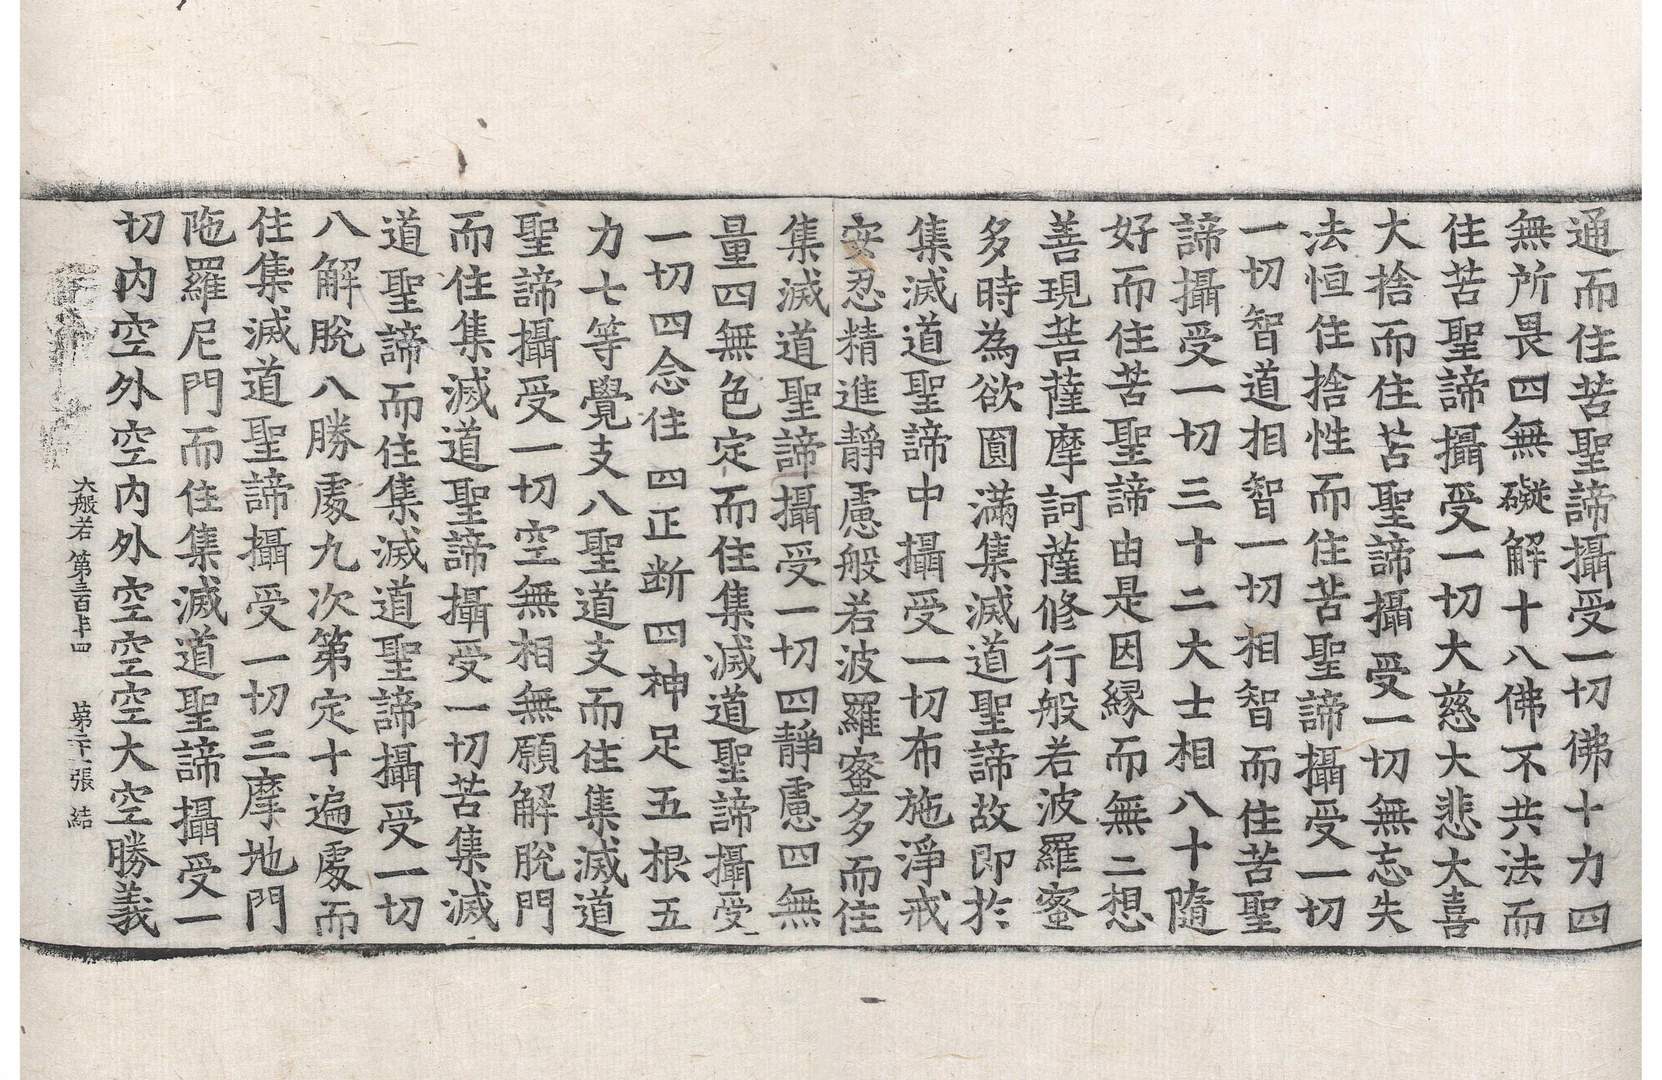 通而住苦聖諦攝受一切佛十力四
無所畏四無礙解十八佛不共法而
住苦聖諦攝受一切大慈大悲大喜
大捨而住苦聖諦攝受一切無忘失
法恒住捨性而住苦聖諦攝受一切
一切智道相智一切相智而住苦聖
諦攝受一切三十二大士相八十隨
好而住苦聖諦由是因縁而無二想
善現菩薩摩訶薩修行般若波羅蜜
多時為欲圓滿集滅道聖諦故即於
集滅道聖諦中攝受一切布施淨戒
安忍精進靜慮般若波羅蜜多而住
集滅道聖諦攝受一切四靜慮四無
量四無色定而住集滅道聖諦攝受
一切四念住四正断四神足五根五
力七等覺支八聖道支而住集滅道
聖諦攝受一切空無相無願解脫門
而住集滅道聖諦攝受一切苦集滅
道聖諦而住集滅道聖諦攝受一切
八解脫八勝處九次第定十遍處而
住集滅道聖諦攝受一切三摩地門
陁羅尼門而住集滅道聖諦攝受一
切内空外空内外空空空大空勝義
大般若第三百 四 第 張 結